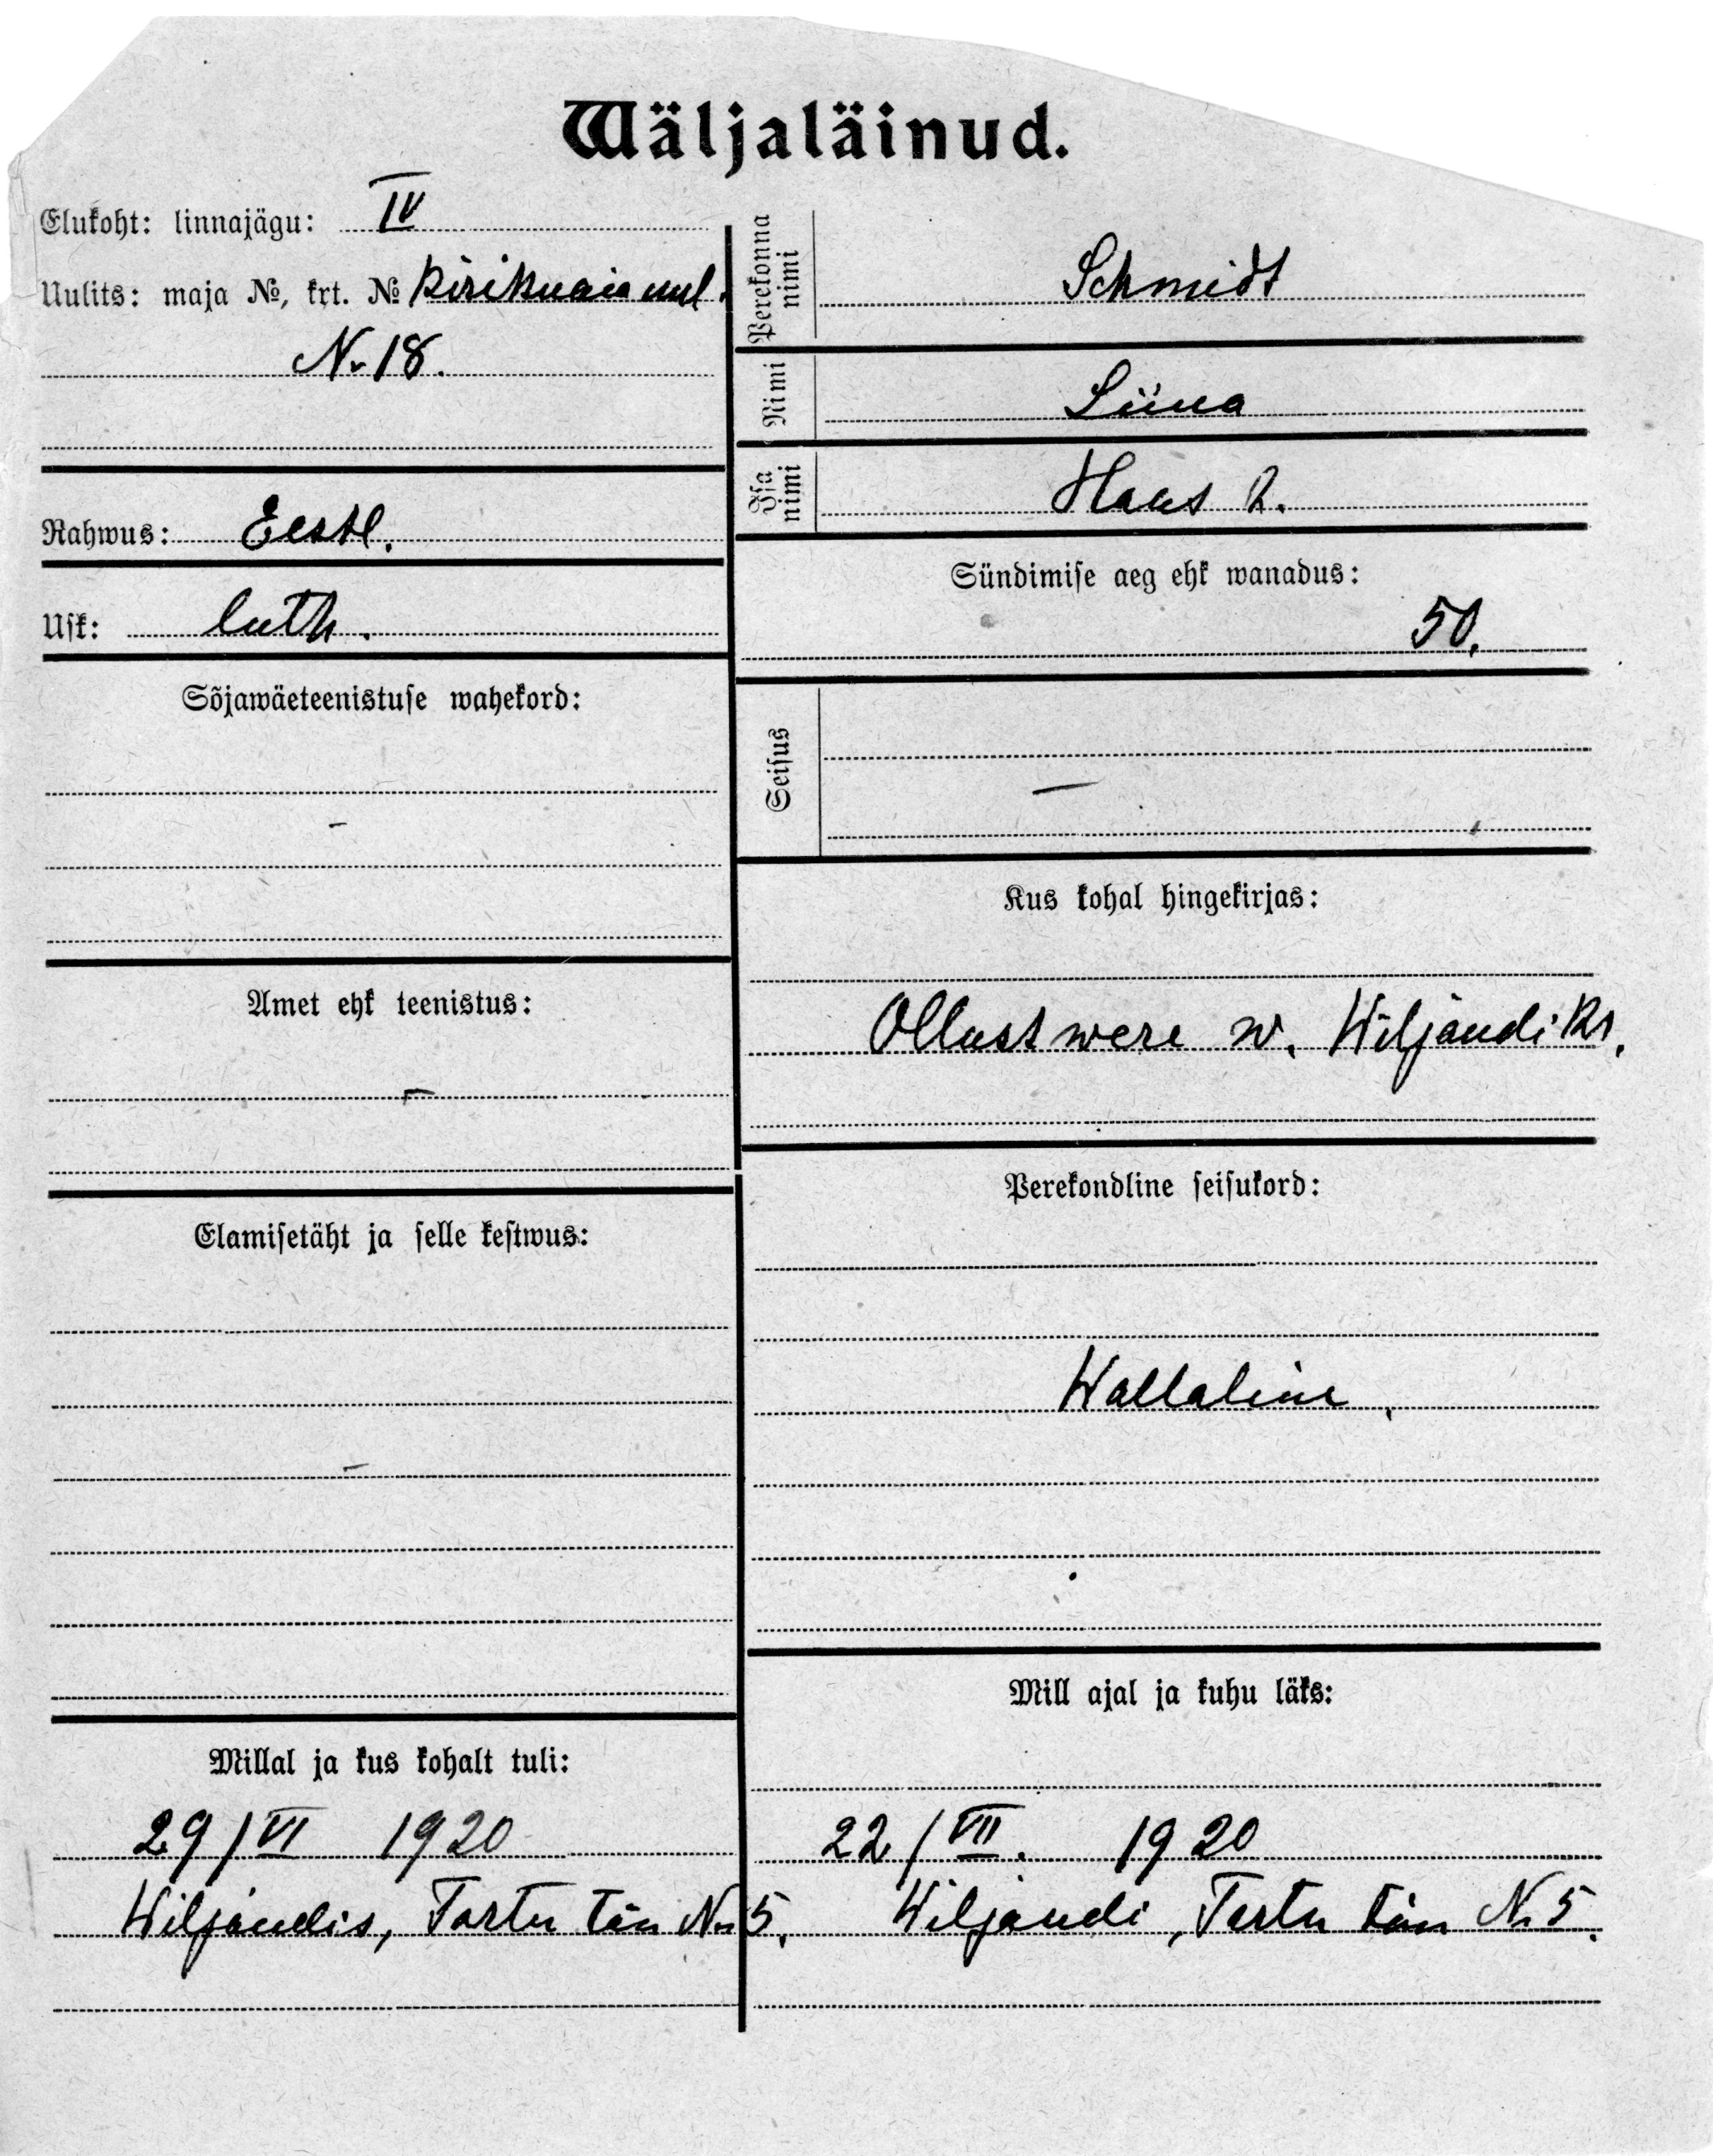 Wäljaläinud.
Elukoht: linnajägu: IV
Uulits: maja №, krt. № Kirikuaia uul.
N. 18.
Rahwus: Eestl.
Usk: luth.
Sõjawäeteenistuse wahekord:
-
Amet ehk teenistus:
-
Elamisetäht ja selle kestwus:
-
Millal ja kus kohalt tuli:
29/VI 1920
Wiljandis, Tartu tän N 5.
Perekonna nimi Schmidt
Nimi Liina
Isa nimi Hans
Sündimise aeg ehk wanadus:
50.
Seisus —
Kus kohal hingekirjas:
Ollustwere w. Wiljandi kr.
Perekondline seisukord:
Wallaline.
Mill ajal ja kuhu läks:
22/VII. 1920
Wiljandi, Tartu tän N 5.